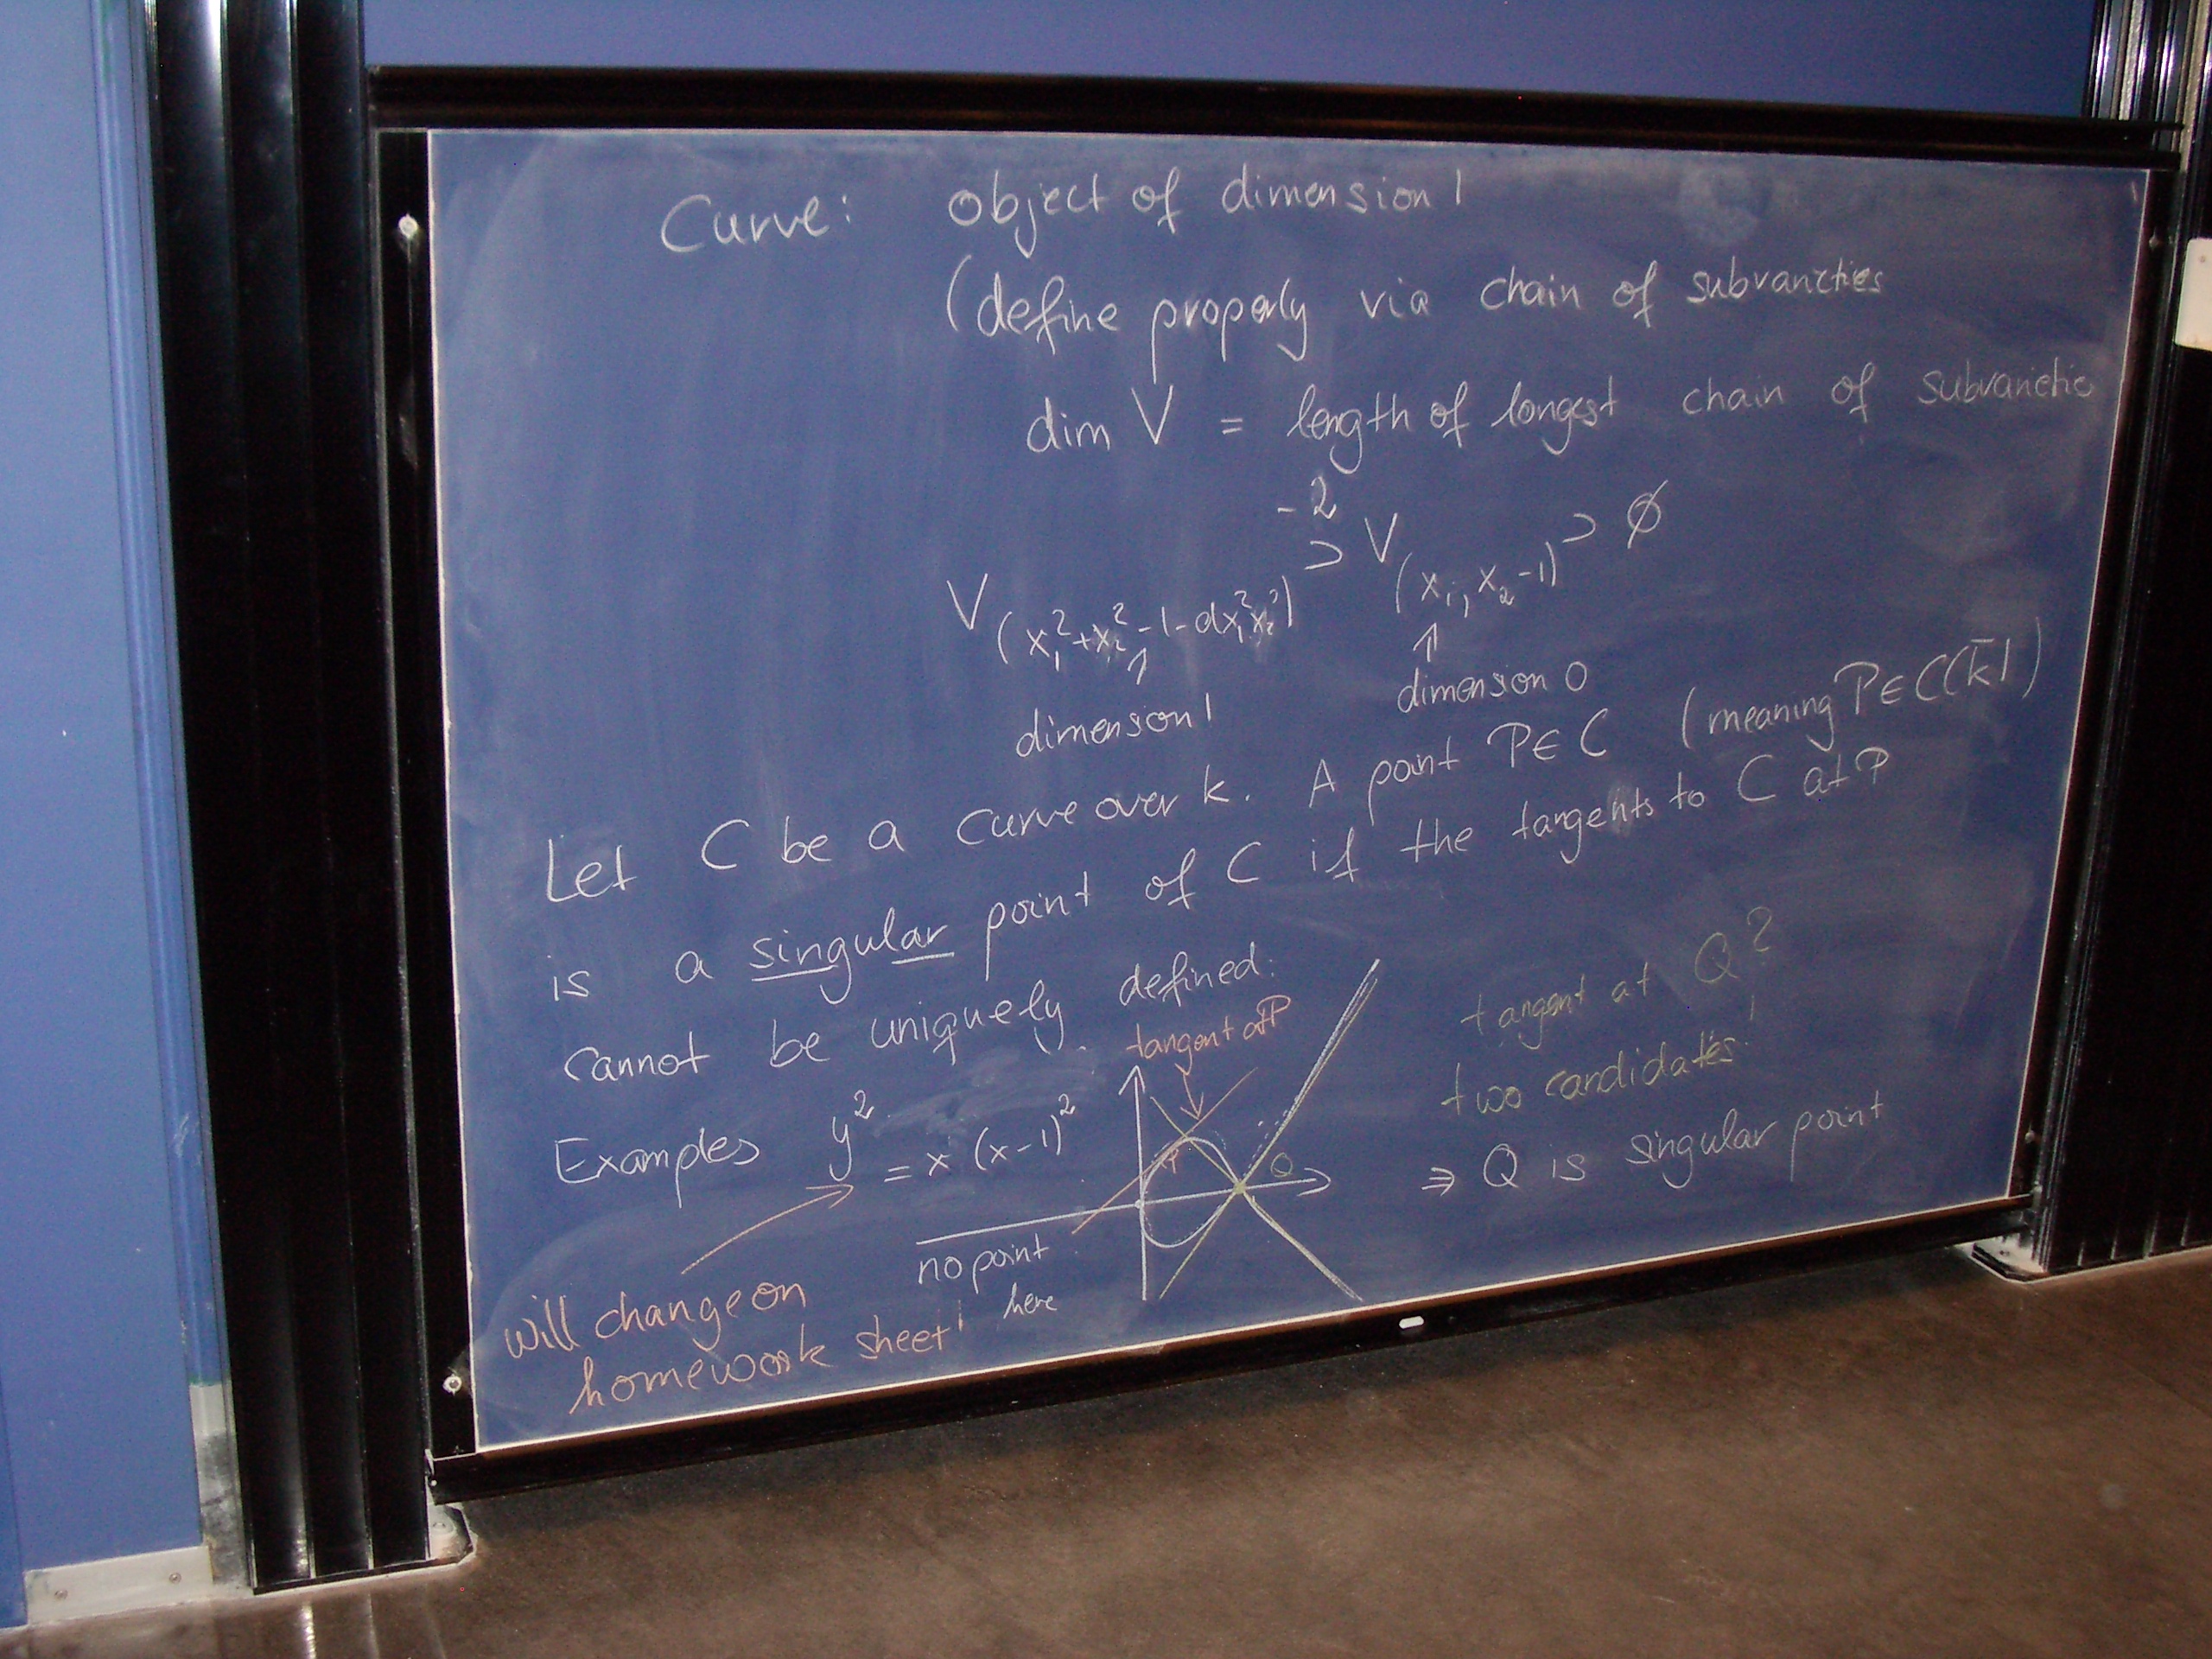 Curve: object of dimension 1
(define properly via chain of subvarieties
dim V = length of longest chain of subvarietie
- 2
V(x₁²+x₂²-1-dx₁²x₂²) ⊃ V(x₁, x₂-1) ⊃ ∅
↑ ↑
dimension 1 dimension 0
Let C be a curve over k. A point P∈C (meaning P∈C(k̄))
is a singular point of C if the tangents to C at P
cannot be uniquely defined.
Examples y² = x (x-1)²
tangent at P
P
Q
no point
here
will change on
homework sheet!
tangent at Q?
two candidates!
⇒ Q is singular point